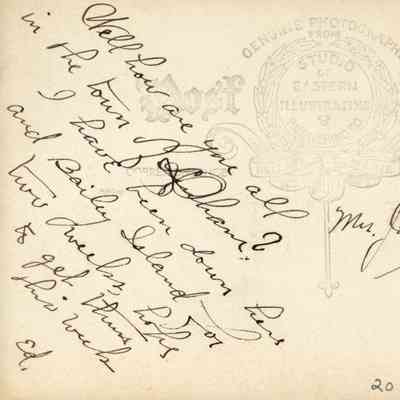 Well how are you all
in the town
I have been down here
and Baily Island for
two weeks, hope
to get thru
this week
Ed.
GENUINE PHOTOGRAPHS
FROM
STUDIO
OF
EASTERN
ILLUSTRATING
&
Post
Mrs.
20